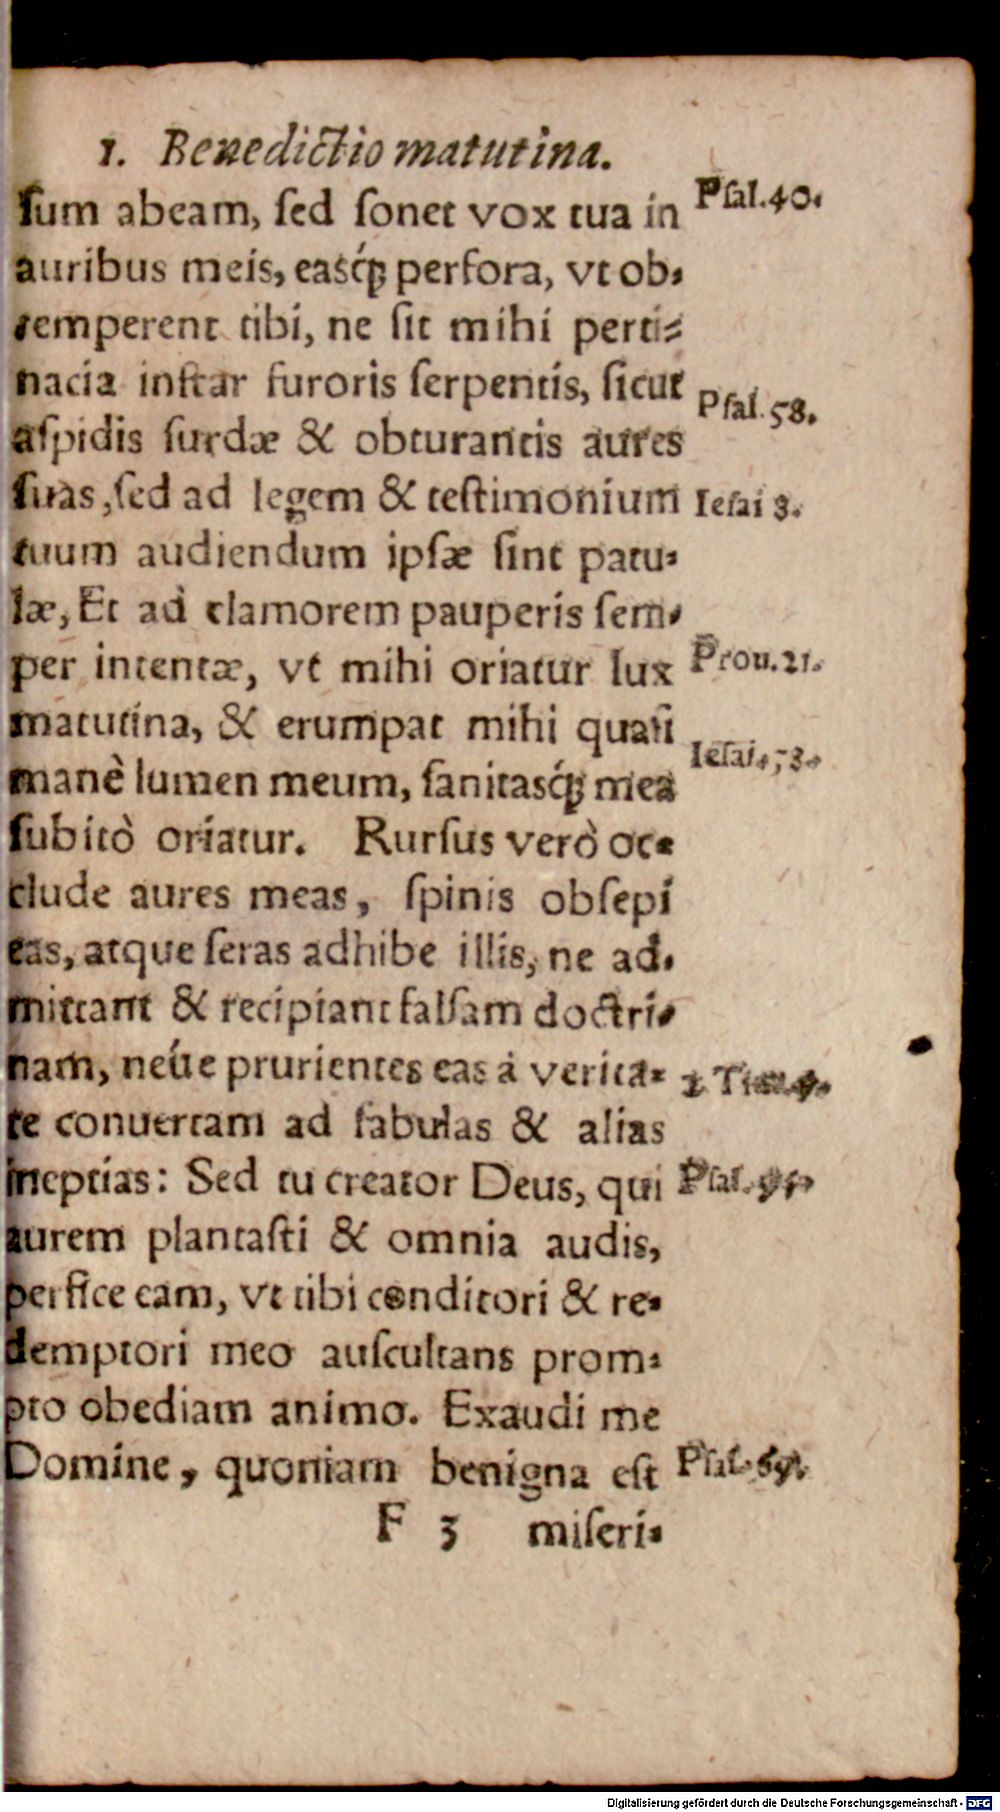 1. Benedictio matutina.
ſum abeam, ſed ſonet vox tua in Pſal.40.
auribus meis, eaſq́; perfora, vt ob-
temperent tibi, ne ſit mihi perti-
nacia inſtar furoris ſerpentis, ſicut
Pſal.58.
aſpidis ſurdæ & obturantis aures
ſuas, ſed ad legem & teſtimonium Ieſai 8.
tuum audiendum ipſæ ſint patu-
læ, Et ad clamorem pauperis ſem-
per intentæ, vt mihi oriatur lux Prou.21.
matutina, & erumpat mihi quaſi
Ieſai.58.
manè lumen meum, ſanitaſq́; mea
ſubitò oriatur. Rurſus verò oc-
clude aures meas, ſpinis obſepi
eas, atque ſeras adhibe illis, ne ad-
mittant & recipiant falſam doctri-
nam, neúe prurientes eas à verita- 2 Tim.4.
te conuertam ad fabulas & alias
ineptias: Sed tu creator Deus, qui Pſal.
aurem plantaſti & omnia audis,
perfice eam, vt tibi conditori & re-
demptori meo auſcultans prom-
pto obediam animo. Exaudi me
Domine, quoniam benigna eſt Pſal.69.
F 3 miſeri-
Digitalisierung gefördert durch die Deutsche Forschungsgemeinschaft - DFG